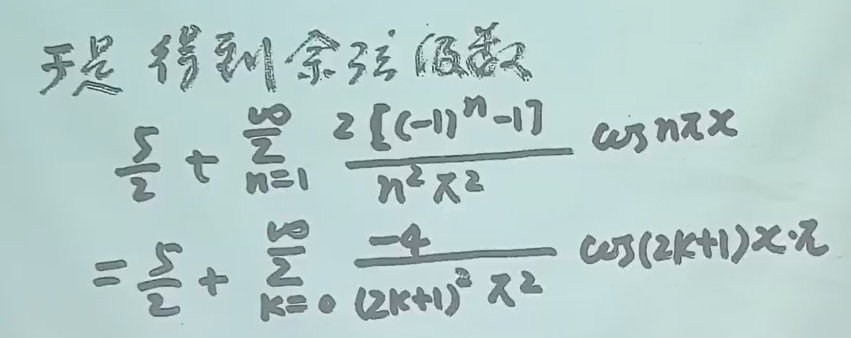 于是得到余弦级数
5/2 + ∑_{n=1}^{∞} 2[(-1)^n-1]/(n²π²) cos nπx
= 5/2 + ∑_{k=0}^{∞} -4/((2k+1)²π²) cos(2k+1)x·π